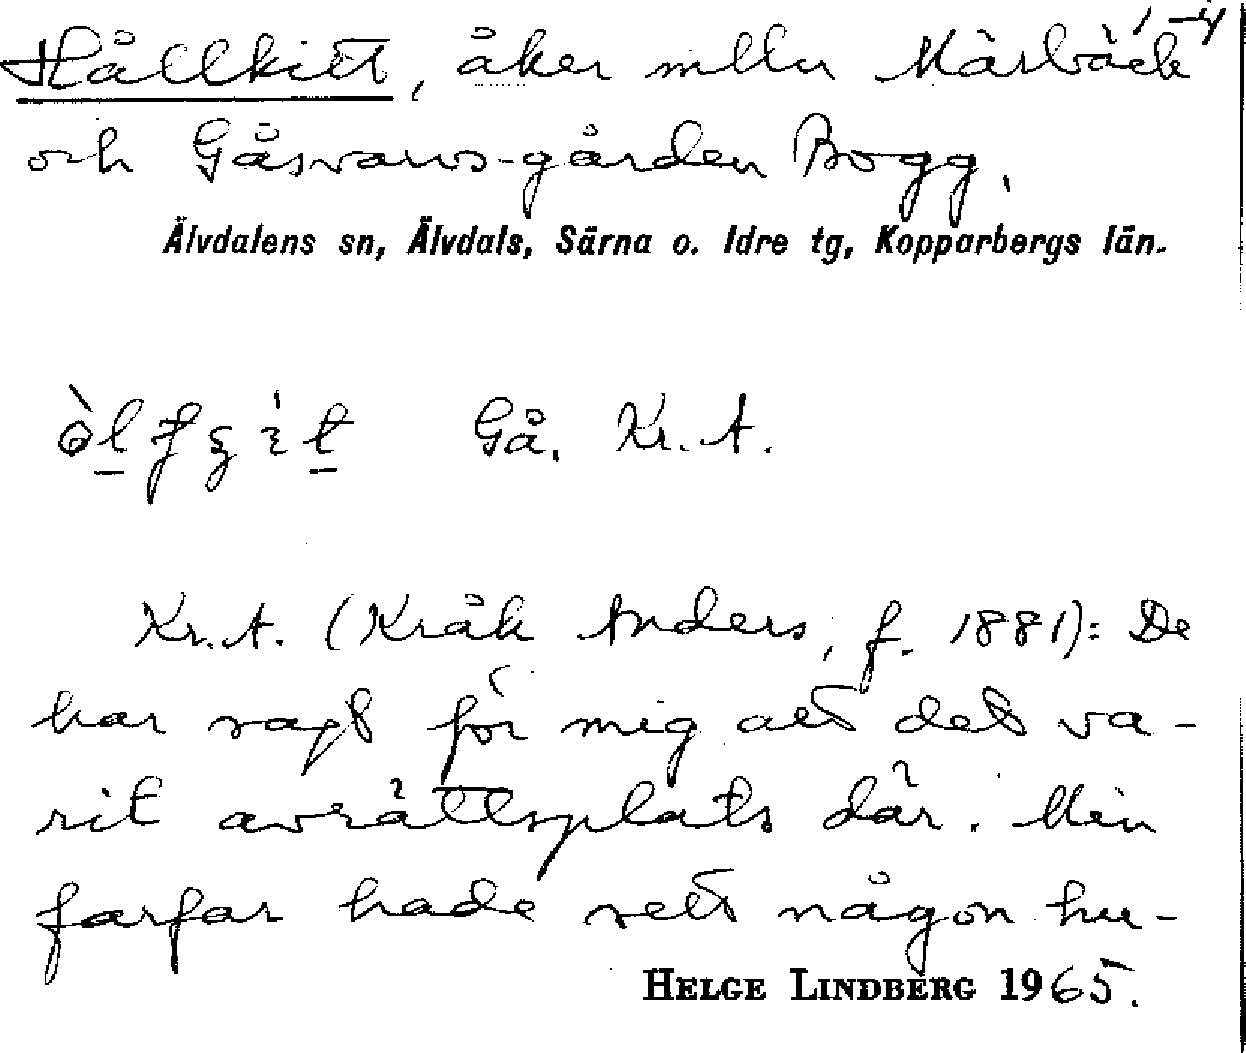 1-4
Hållkitt, åker mllu Märbäck
och Gåsvarvs-gården Bogg,
Älvdalens sn, Älvdals, Särna o. Idre tg, Kopparbergs län.
Gå. Kr. A.
Kr. A. (Kråk Anders, f. 1881): De
har sagt för mig att det va-
rit avrättsplats där. Min
farfar hade sett någon hu-
HELGE LINDBERG 1965.